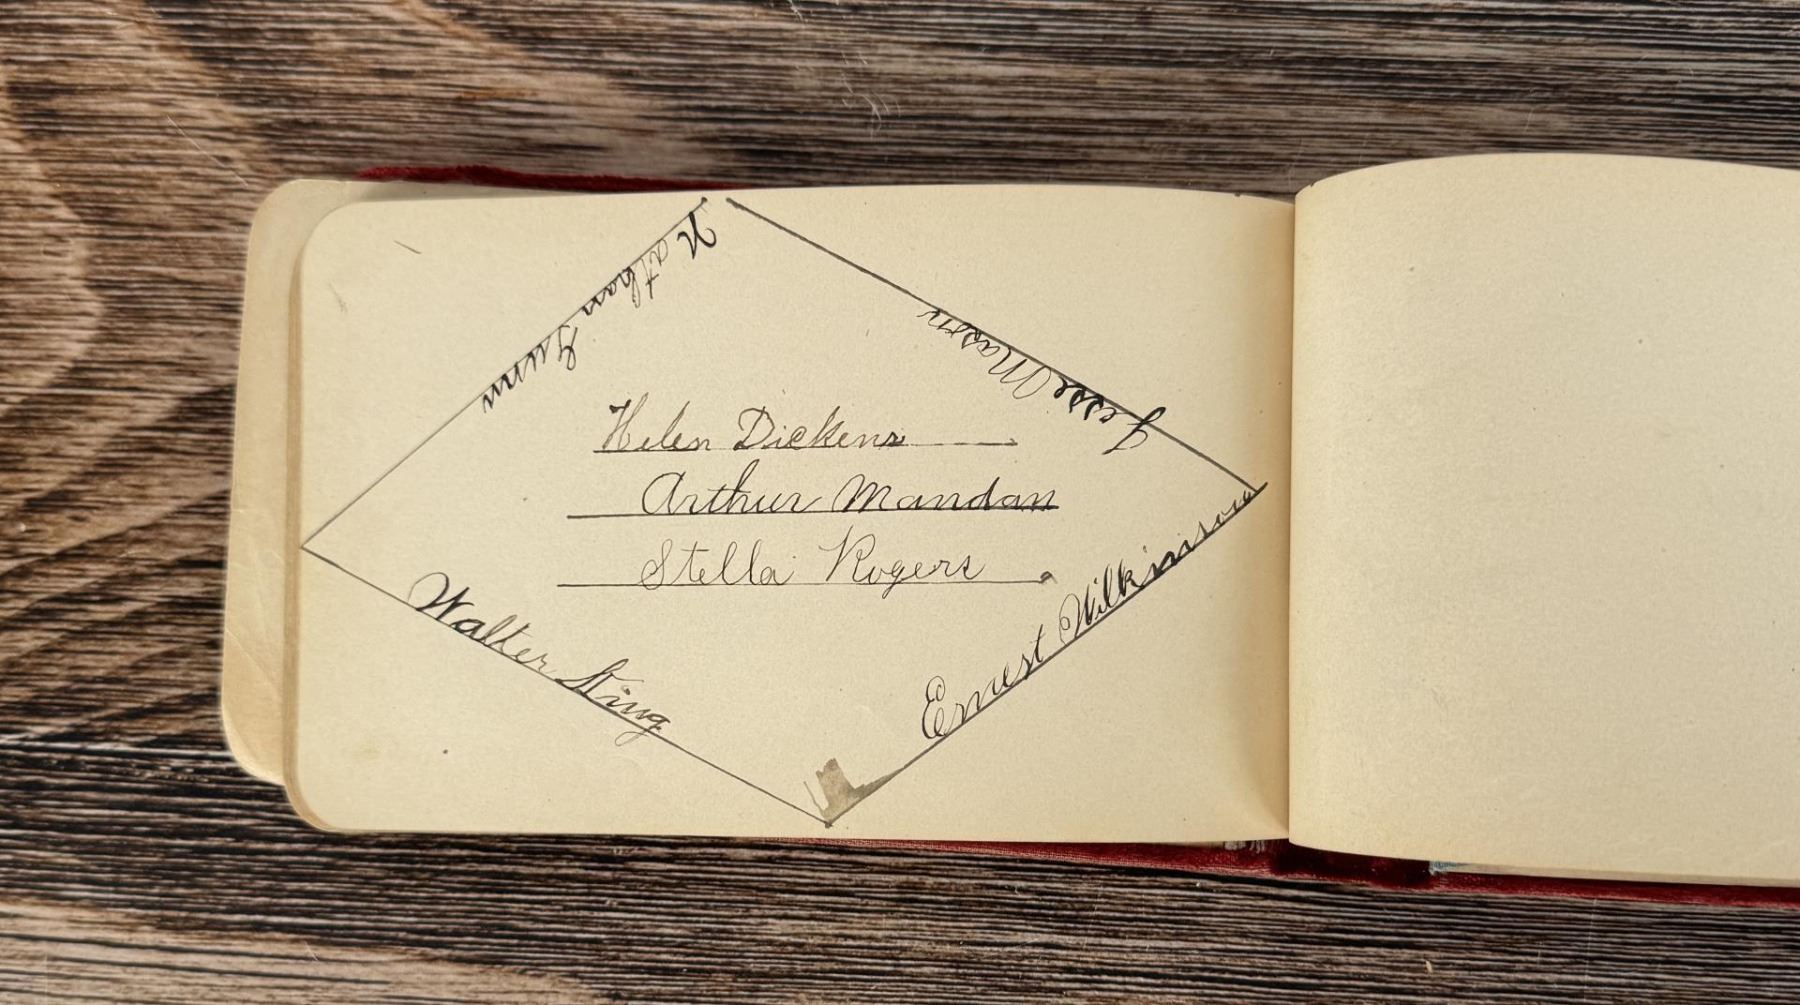 Nathan Gunn
Jesse Mason
Helen Dickens
Arthur Mandan
Stella Rogers
Walter King
Ernest Wilkinson